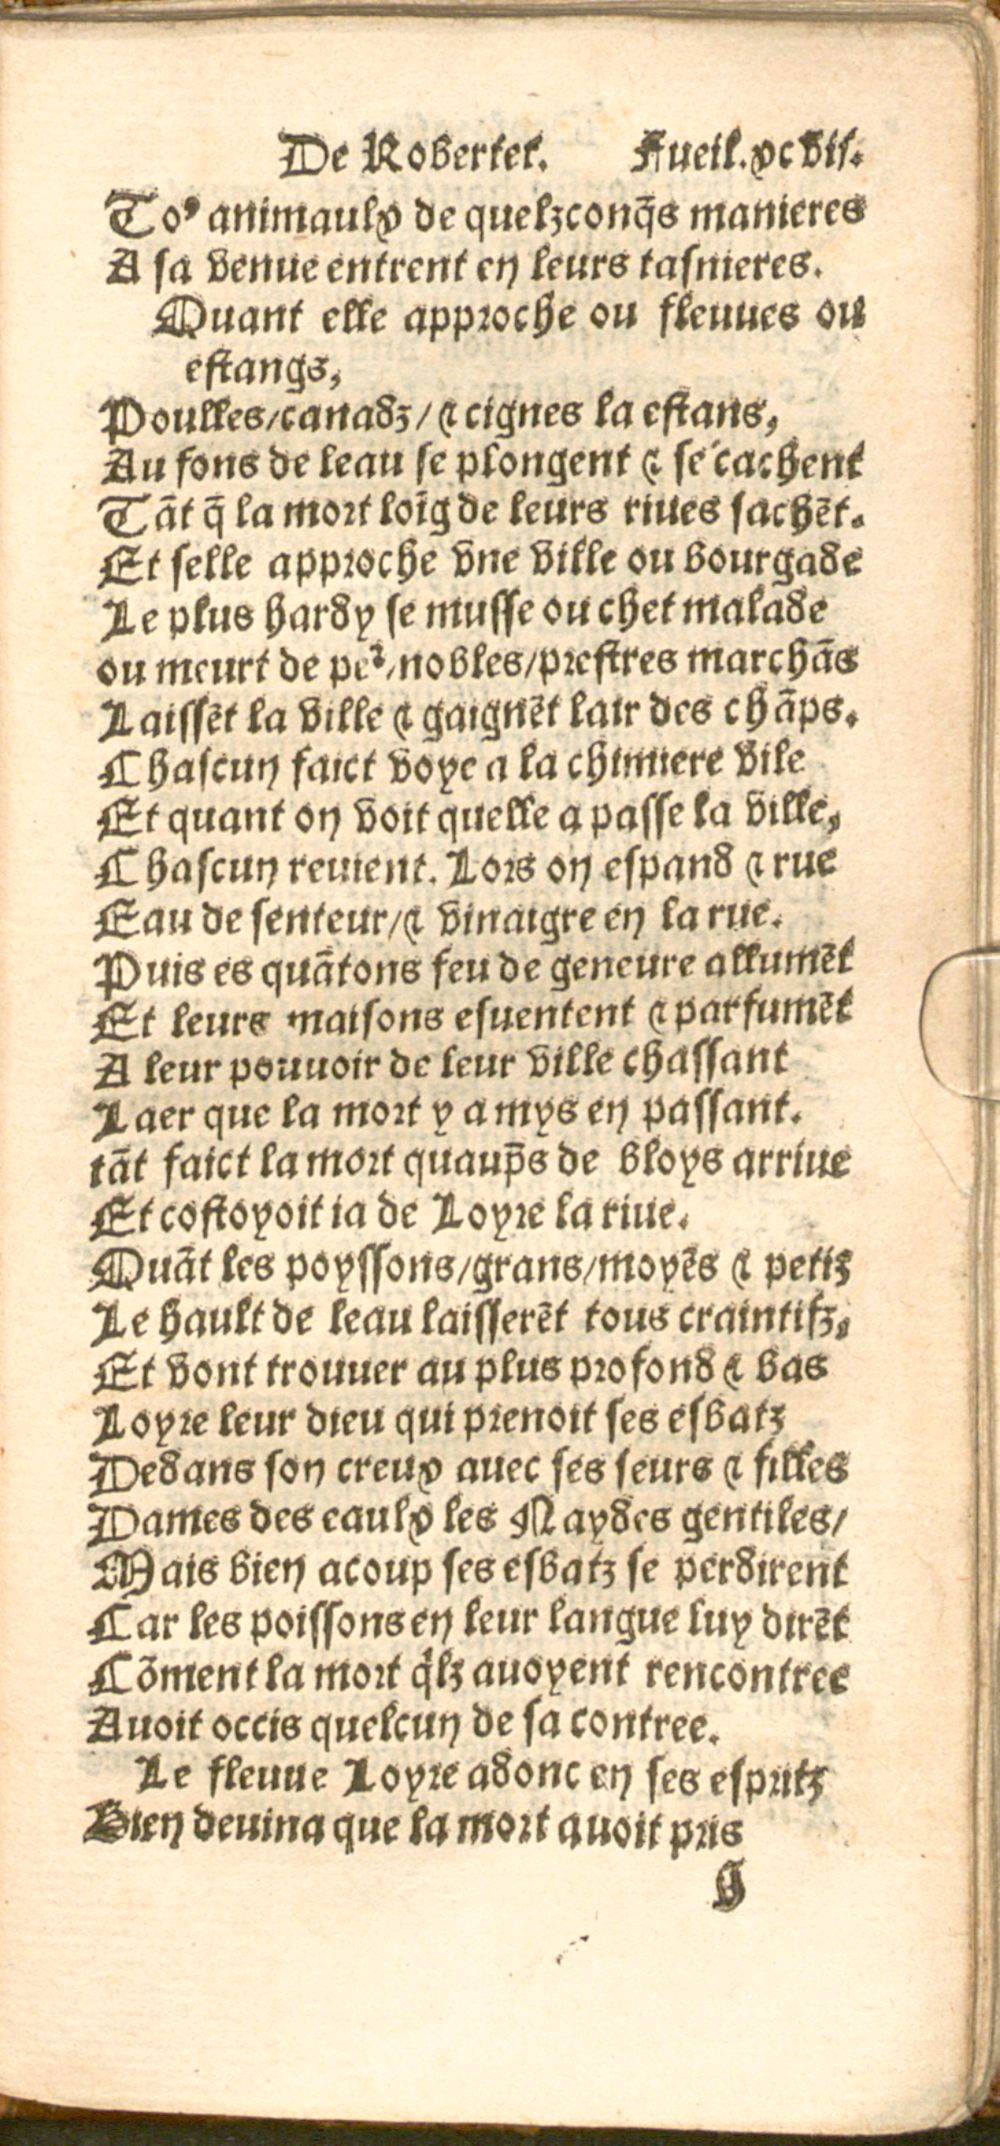 De Robertet. Fueil. xcvii.
To⁹ animaulx de quelzconq̄s manieres
A sa venue entrent en leurs tasnieres.
Quant elle approche ou fleuues ou
estangs,
Poulles/canadz/⁊ cignes la estans,
Au fons de leau se plongent ⁊ se cachent
Tāt q̄ la mort loīg de leurs riues sachēt.
Et selle approche vne ville ou bourgade
Le plus hardy se musse ou chet malade
ou meurt de peꝛ̉/nobles/prestres marchās
Laissēt la ville ⁊ gaignēt lair des chāps.
Chascun faict voye a la chimere vile
Et quant on voit quelle a passe la ville,
Chascun reuient. Lors on espand ⁊ rue
Eau de senteur/⁊ vinaigre en la rue.
Puis es quātons feu de geneure allumēt
Et leurs maisons esuentent ⁊ parfumēt
A leur pouuoir de leur ville chassant
Laer que la mort y a mys en passant.
tāt faict la mort quaup̄s de bloys arriue
Et costoyoit ia de Loyre la riue.
Quāt les poyssons/grans/moyēs ⁊ petiz
Le hault de leau laisserēt tous craintifz,
Et vont trouuer au plus profond ⁊ bas
Loyre leur dieu qui prenoit ses esbatz
Dedans son creux auec ses seurs ⁊ filles
Dames des eaulx les Naydes gentiles/
Mais bien acoup ses esbatz se perdirent
Car les poissons en leur langue luy dirēt
Cōment la mort q̓lz auoyent rencontree
Auoit occis quelcun de sa contree.
Le fleuue Loyre adonc en ses espritz
Bien deuina que la mort auoit pris